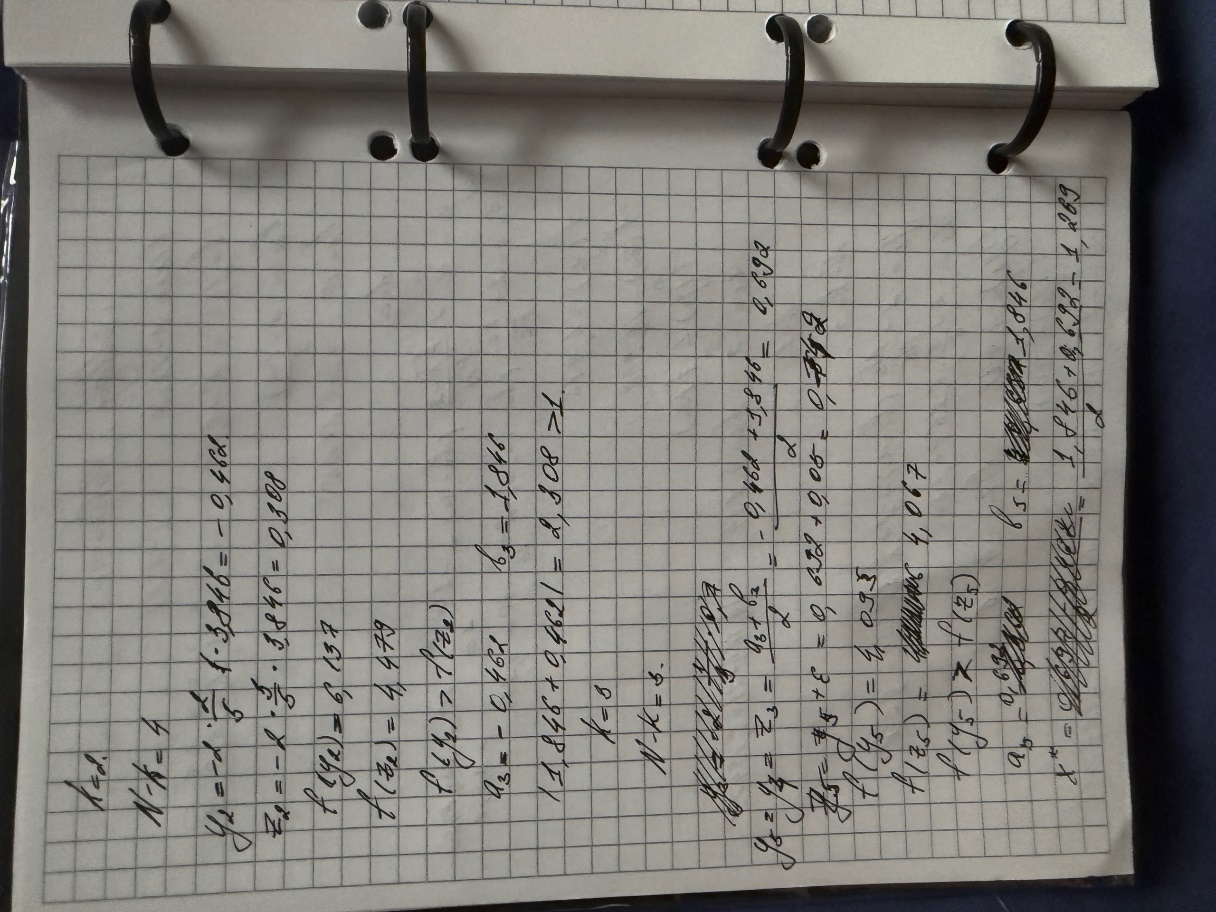 k=2.
N-k=4
y₂ = -2 · 2/5 · 3,846 = -0,462.
z₂ = -2 · 3/5 · 3,846 = 0,308
f(y₂) = 6,137
f(z₂) = 4,479
f(y₂) > f(z₂)
a₃ = -0,462 b₃ = 1,846
|1,846 + 0,4621 = 2,308 > 1.
k=3
N-k=3.
y₅ = y₄ = z₃ = (a₃ + b₃)/2 = (-0,462 + 1,846)/2 = 0,692
z₅ = y₅ + ε = 0,692 + 0,05 = 0,742
f(y₅) = 4,093
f(z₅) = 4,067
f(y₅) > f(z₅)
a₅ = 0,692 b₅ = 1,846
x* = (1,846 + 0,692)/2 = 1,269